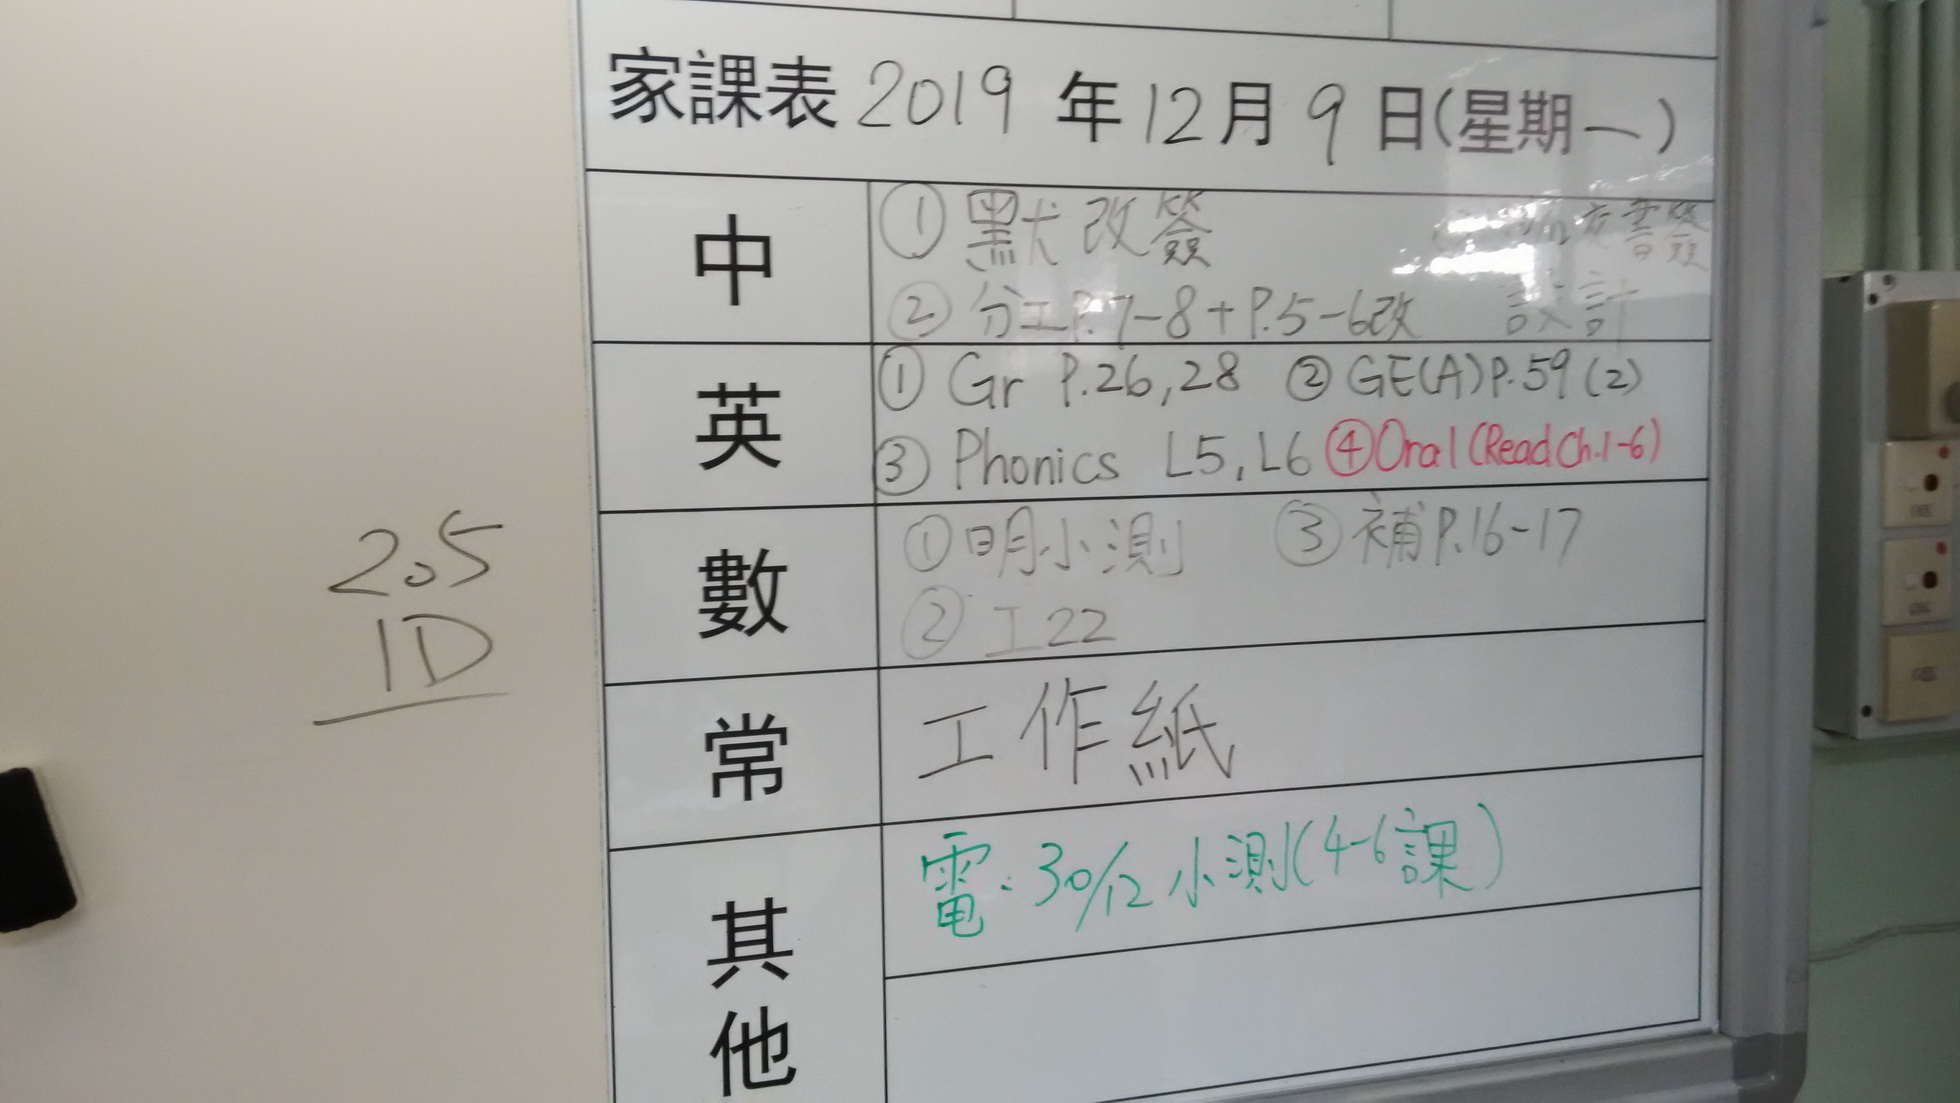 家課表 2019 年 12 月 9 日(星期一)
中
① 默改簽
② 分工P.7-8+P.5-6改 設計
英
① Gr P.26,28 ② GE(A)P.59(2)
③ Phonics L5, L6 ④Oral(Read Ch.1-6)
數
①明小測 ③補P.16-17
②工22
常
工作紙
其他
電: 30/12 小測(4-6課)
205
1D